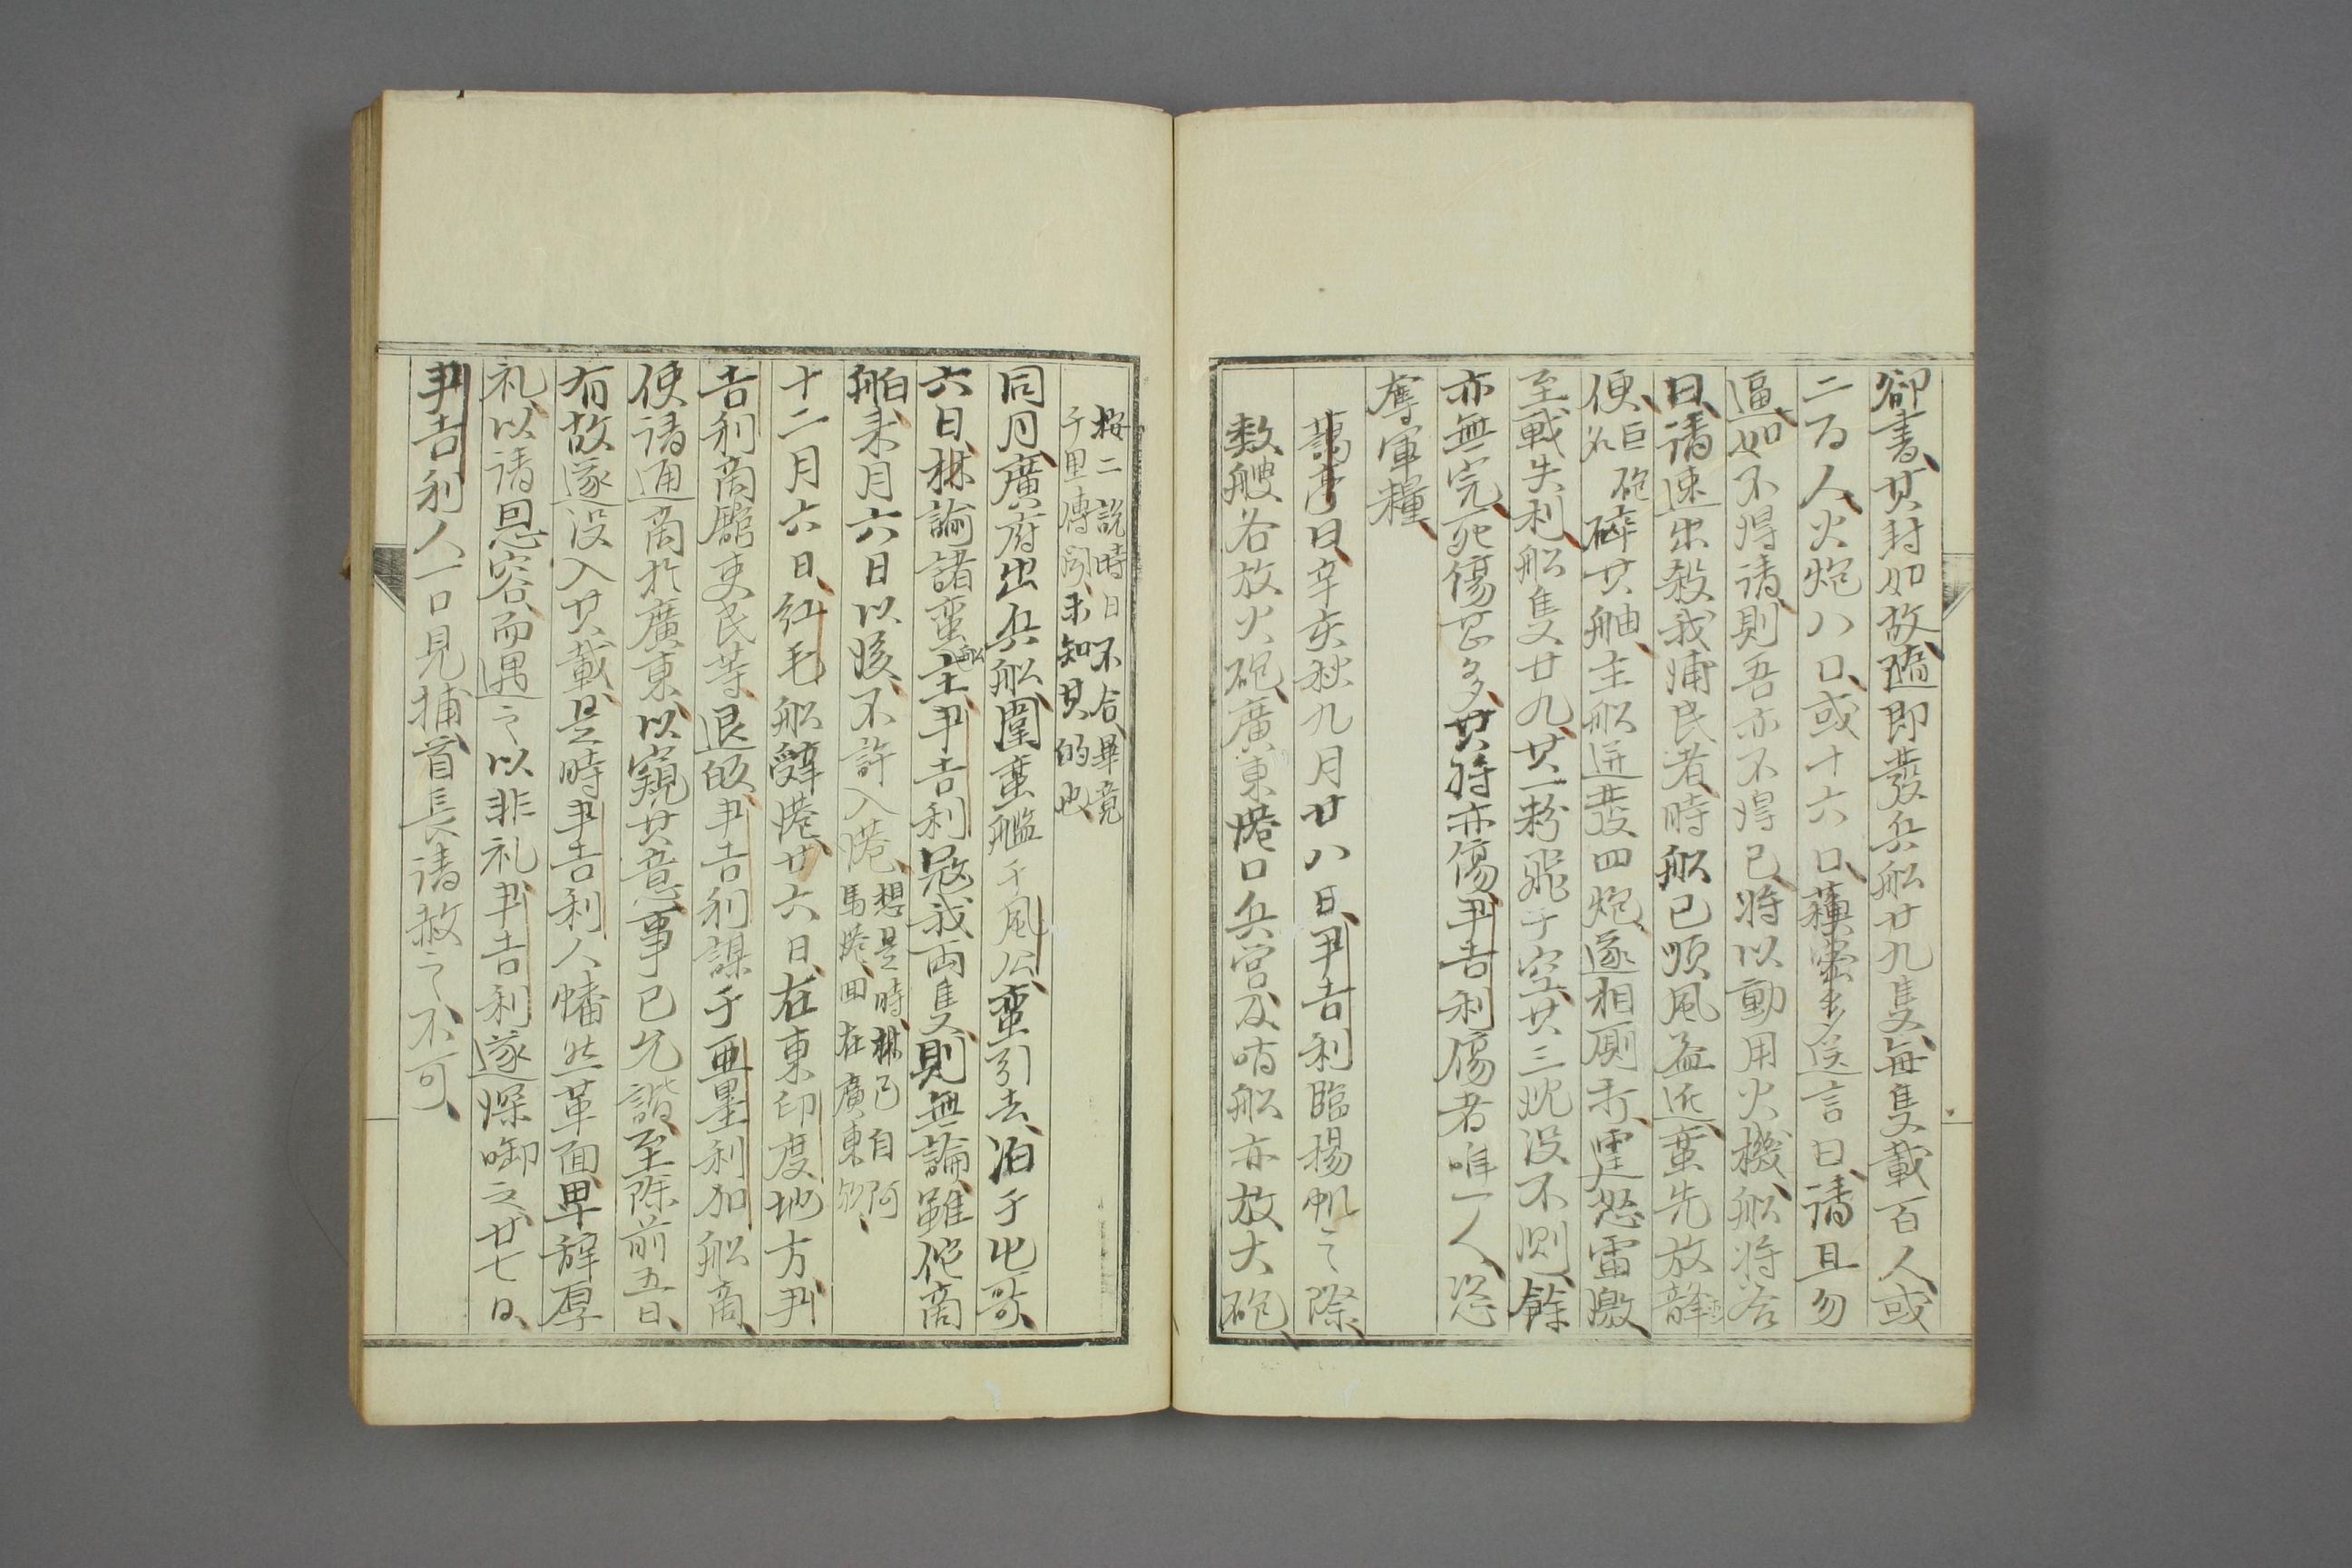 卻書其封如故隨即發兵船廿九隻每隻載百人或
二百人火炮八口或十六口蘓蛮多送言曰請且勿
逼如不得請則吾亦不得已將以動用火機船將答
曰請速出殺我浦民者時船已順風益近蛮先放
便以巨砲碎其舳主船迸發四炮遂相厮打霆怒雷激
至戰失利船隻廿九其一粉飛于空其三沈没不測餘
亦無完死傷甚多其將亦傷尹吉利傷者唯一人恣
奪軍糧
謁彎日辛亥秋九月廿八日尹吉利臨揚帆之際
数艘各放火砲廣東港口兵営及哨船亦放大砲
按二説時日不合畢竟
千里傳聞未知其的也
同月廣府出兵船圍蛮艦于風公蛮引去泊于化哥
六日林諭諸蛮船主尹吉利冦我両隻則無論雖佗商
舶来月六日以後不許入港
想是時林已自阿
馬港回在廣東
十二月六日紅毛船辞港廿六日在東印度地方尹
吉利商舘吏民等退的尹吉利謀于亜墨利加船商
使請通商於廣東以窺其意事已允諧至除前五日
有故遂没入其載是時尹吉利人幡然革面卑辞厚
礼以請恩容而遇之以非礼尹吉利遂深啣之廿七日
尹吉利人一口見捕酋長請赦之不可